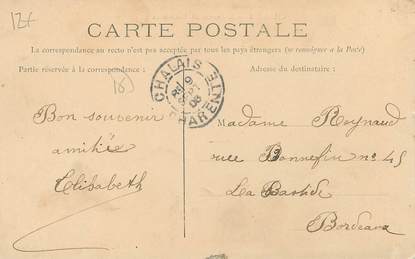 12t
CARTE POSTALE
La correspondance au recto n'est pas acceptée par tous les pays étrangers (se renseigner a la Poste)
Partie réservée à la correspondance :
Adresse du destinataire :
16)
CHALAIS
CHARENTE
Bon souvenir
amitié
Elisabeth
Madame Reynaud
rue Bonnefin n° 45
La Bastide
Bordeaux